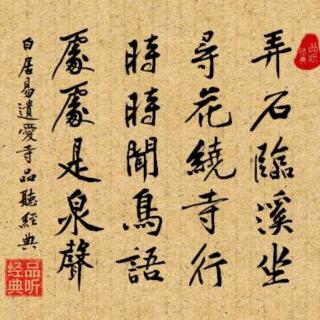 品听
经典
弄石臨溪坐
尋花繞寺行
時時聞鳥語
處處是泉聲
白居易遺愛寺品聽經典
品听
经典